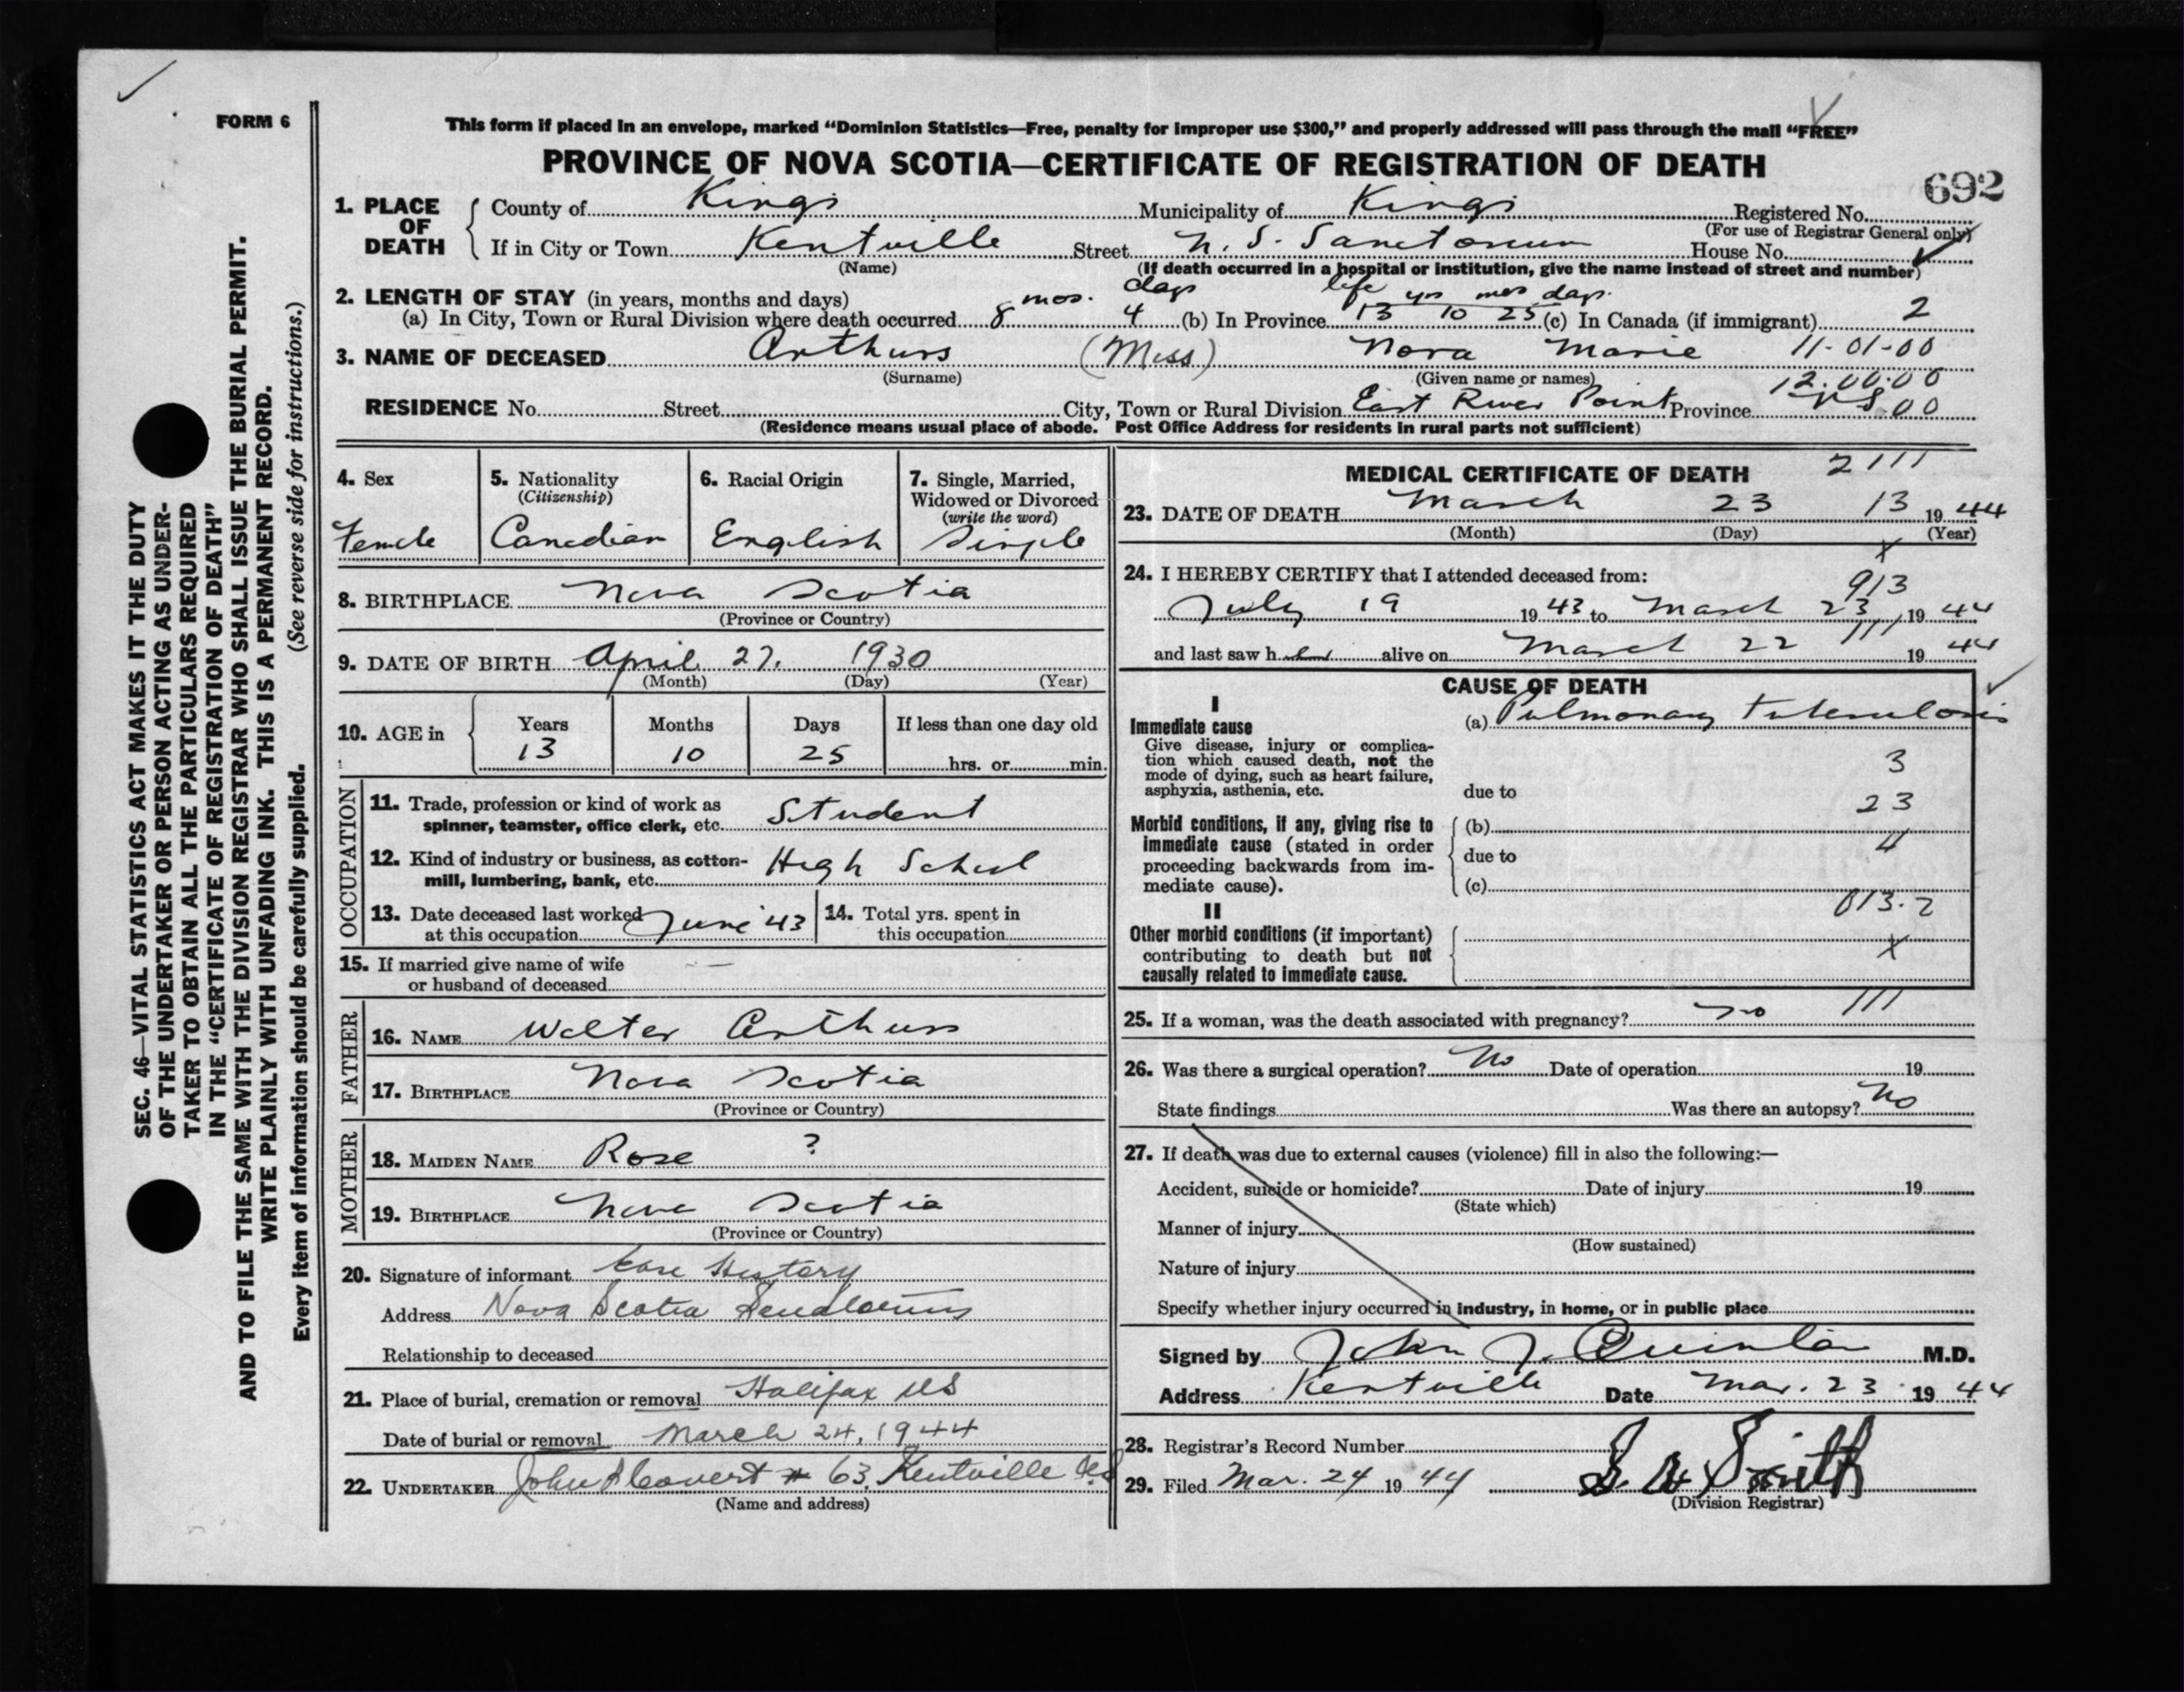 FORM 6
This form if placed in an envelope, marked “Dominion Statistics—Free, penalty for improper use $300,” and properly addressed will pass through the mail “FREE”
PROVINCE OF NOVA SCOTIA—CERTIFICATE OF REGISTRATION OF DEATH
692
1. PLACE OF DEATH County of Kings Municipality of Kings Registered No.
(For use of Registrar General only)
If in City or Town Kentville Street N. S. Sanatorium House No.
(Name) (If death occurred in a hospital or institution, give the name instead of street and number)
2. LENGTH OF STAY (in years, months and days) mos. days life yrs mos days.
(a) In City, Town or Rural Division where death occurred 8 4 (b) In Province 13 10 25 (c) In Canada (if immigrant) 2
3. NAME OF DECEASED Arthurs (Miss) Nora Marie 11-01-00
(Surname) (Given name or names) 12.00.00
RESIDENCE No. Street City, Town or Rural Division East River Point Province NS 00
(Residence means usual place of abode. Post Office Address for residents in rural parts not sufficient)
4. Sex
Female
5. Nationality
(Citizenship)
Canadian
6. Racial Origin
English
7. Single, Married,
Widowed or Divorced
(write the word)
Single
8. BIRTHPLACE Nova Scotia
(Province or Country)
9. DATE OF BIRTH April 27. 1930
(Month) (Day) (Year)
10. AGE in Years Months Days If less than one day old
13 10 25 hrs. or min.
OCCUPATION
11. Trade, profession or kind of work as
spinner, teamster, office clerk, etc. Student
12. Kind of industry or business, as cotton-
mill, lumbering, bank, etc. High School
13. Date deceased last worked
at this occupation June '43
14. Total yrs. spent in
this occupation
15. If married give name of wife
or husband of deceased — —
FATHER
16. NAME Walter Arthurs
17. BIRTHPLACE Nova Scotia
(Province or Country)
MOTHER
18. MAIDEN NAME Rose ?
19. BIRTHPLACE Nova Scotia
(Province or Country)
20. Signature of informant Case History
Address Nova Scotia Sanatorium
Relationship to deceased
21. Place of burial, cremation or removal Halifax NS
Date of burial or removal March 24, 1944
22. UNDERTAKER John Covert # 63, Kentville N.S
(Name and address)
MEDICAL CERTIFICATE OF DEATH 2111
23. DATE OF DEATH March 23 13 1944
(Month) (Day) (Year)
X
24. I HEREBY CERTIFY that I attended deceased from:
913
July 19 1943 to March 23, 1944
111
and last saw her alive on March 22 1944
CAUSE OF DEATH
I
Immediate cause
(a) Pulmonary tuberculosis
Give disease, injury or complica-
tion which caused death, not the
mode of dying, such as heart failure,
asphyxia, asthenia, etc.
3
due to
23
Morbid conditions, if any, giving rise to
immediate cause (stated in order
proceeding backwards from im-
mediate cause).
(b)
4
due to
(c)
013.2
II
Other morbid conditions (if important)
contributing to death but not
causally related to immediate cause.
X
25. If a woman, was the death associated with pregnancy? no 111
26. Was there a surgical operation? No Date of operation 19
State findings Was there an autopsy? No
27. If death was due to external causes (violence) fill in also the following:—
Accident, suicide or homicide? Date of injury 19
(State which)
Manner of injury
(How sustained)
Nature of injury
Specify whether injury occurred in industry, in home, or in public place
Signed by John J. Quinlan M.D.
Address Kentville Date Mar. 23 1944
28. Registrar's Record Number
29. Filed Mar. 24 1944 Smith
(Division Registrar)
SEC. 46—VITAL STATISTICS ACT MAKES IT THE DUTY
OF THE UNDERTAKER OR PERSON ACTING AS UNDER-
TAKER TO OBTAIN ALL THE PARTICULARS REQUIRED
IN THE “CERTIFICATE OF REGISTRATION OF DEATH”
AND TO FILE THE SAME WITH THE DIVISION REGISTRAR WHO SHALL ISSUE THE BURIAL PERMIT.
WRITE PLAINLY WITH UNFADING INK. THIS IS A PERMANENT RECORD.
Every item of information should be carefully supplied. (See reverse side for instructions.)